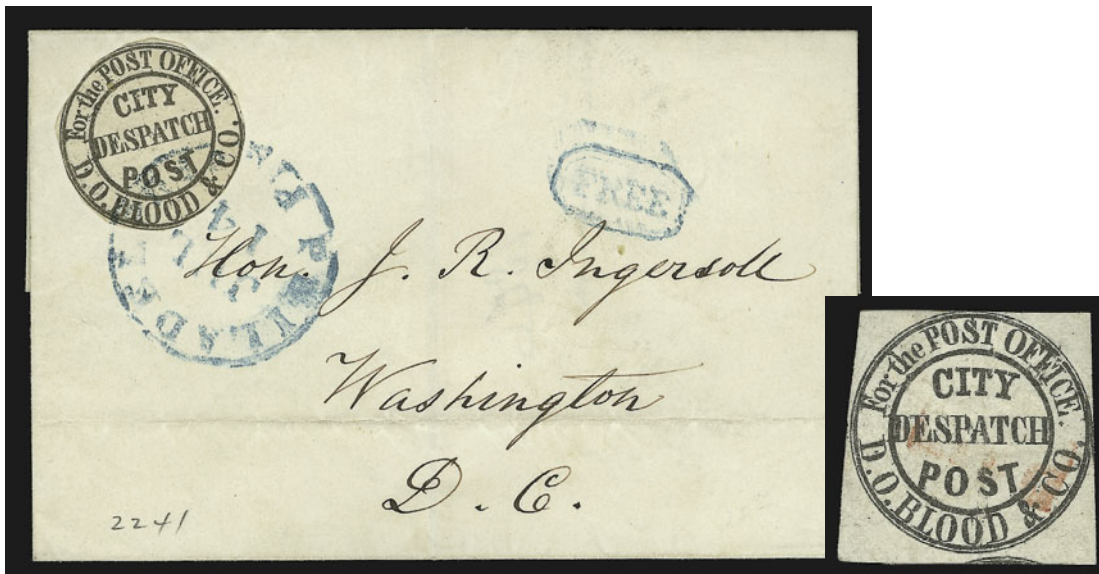 For the POST OFFICE.
CITY
DESPATCH
POST
D.O. BLOOD & CO.
FREE
PHILADA
Pa
JUL
Hon. J. R. Ingersoll
Washington
D. C.
2241
For the POST OFFICE.
CITY
DESPATCH
POST
D.O. BLOOD & CO.